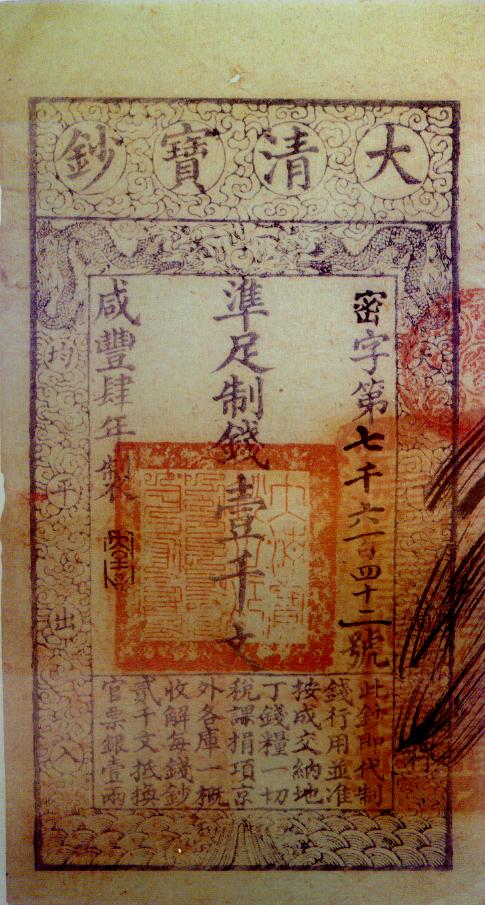 大清寶鈔
天
行
密字第七千六百四十二號
準足制錢壹千文
咸豐肆年製
均平出入
此鈔即代制
錢行用並准
按成交納地
丁錢糧一切
稅課捐項京
外各庫一概
收解每錢鈔
貳千文抵換
官票銀壹兩